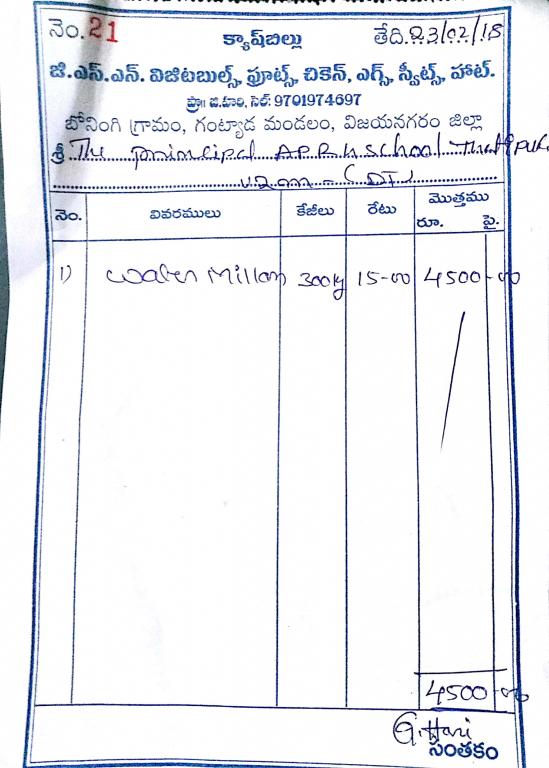 నెం.21 క్యాష్‌బిల్లు తేది.23/02/18
జి.ఎస్.ఎన్. విజిటబుల్స్, ఫ్రూట్స్, చికెన్, ఎగ్స్, స్వీట్స్, హాట్.
ప్రొ॥ జి.హరి, సెల్: 9701974697
బోనింగి గ్రామం, గంట్యాడ మండలం, విజయనగరం జిల్లా
శ్రీ The principal A.P.R.
school
నెం. వివరములు కేజీలు రేటు మొత్తము
రూ. పై.
1) water Millan 300kg 15-00 4500-00
4500-00
G. Hari
సంతకం